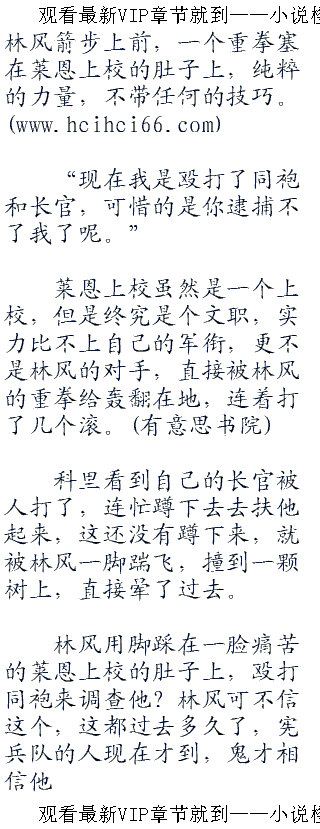 观看最新VIP章节就到——小说检
林风箭步上前，一个重拳塞
在莱恩上校的肚子上，纯粹
的力量，不带任何的技巧。
(www.hcihci66.com)
“现在我是殴打了同袍
和长官，可惜的是你逮捕不
了我了呢。”
莱恩上校虽然是一个上
校，但是终究是个文职，实
力比不上自己的军衔，更不
是林风的对手，直接被林风
的重拳给轰翻在地，连着打
了几个滚。(有意思书院)
科里看到自己的长官被
人打了，连忙蹲下去去扶他
起来，这还没有蹲下来，就
被林风一脚踹飞，撞到一颗
树上，直接晕了过去。
林风用脚踩在一脸痛苦
的莱恩上校的肚子上，殴打
同袍来调查他？林风可不信
这个，这都过去多久了，宪
兵队的人现在才到，鬼才相
信他
观看最新VIP章节就到——小说检